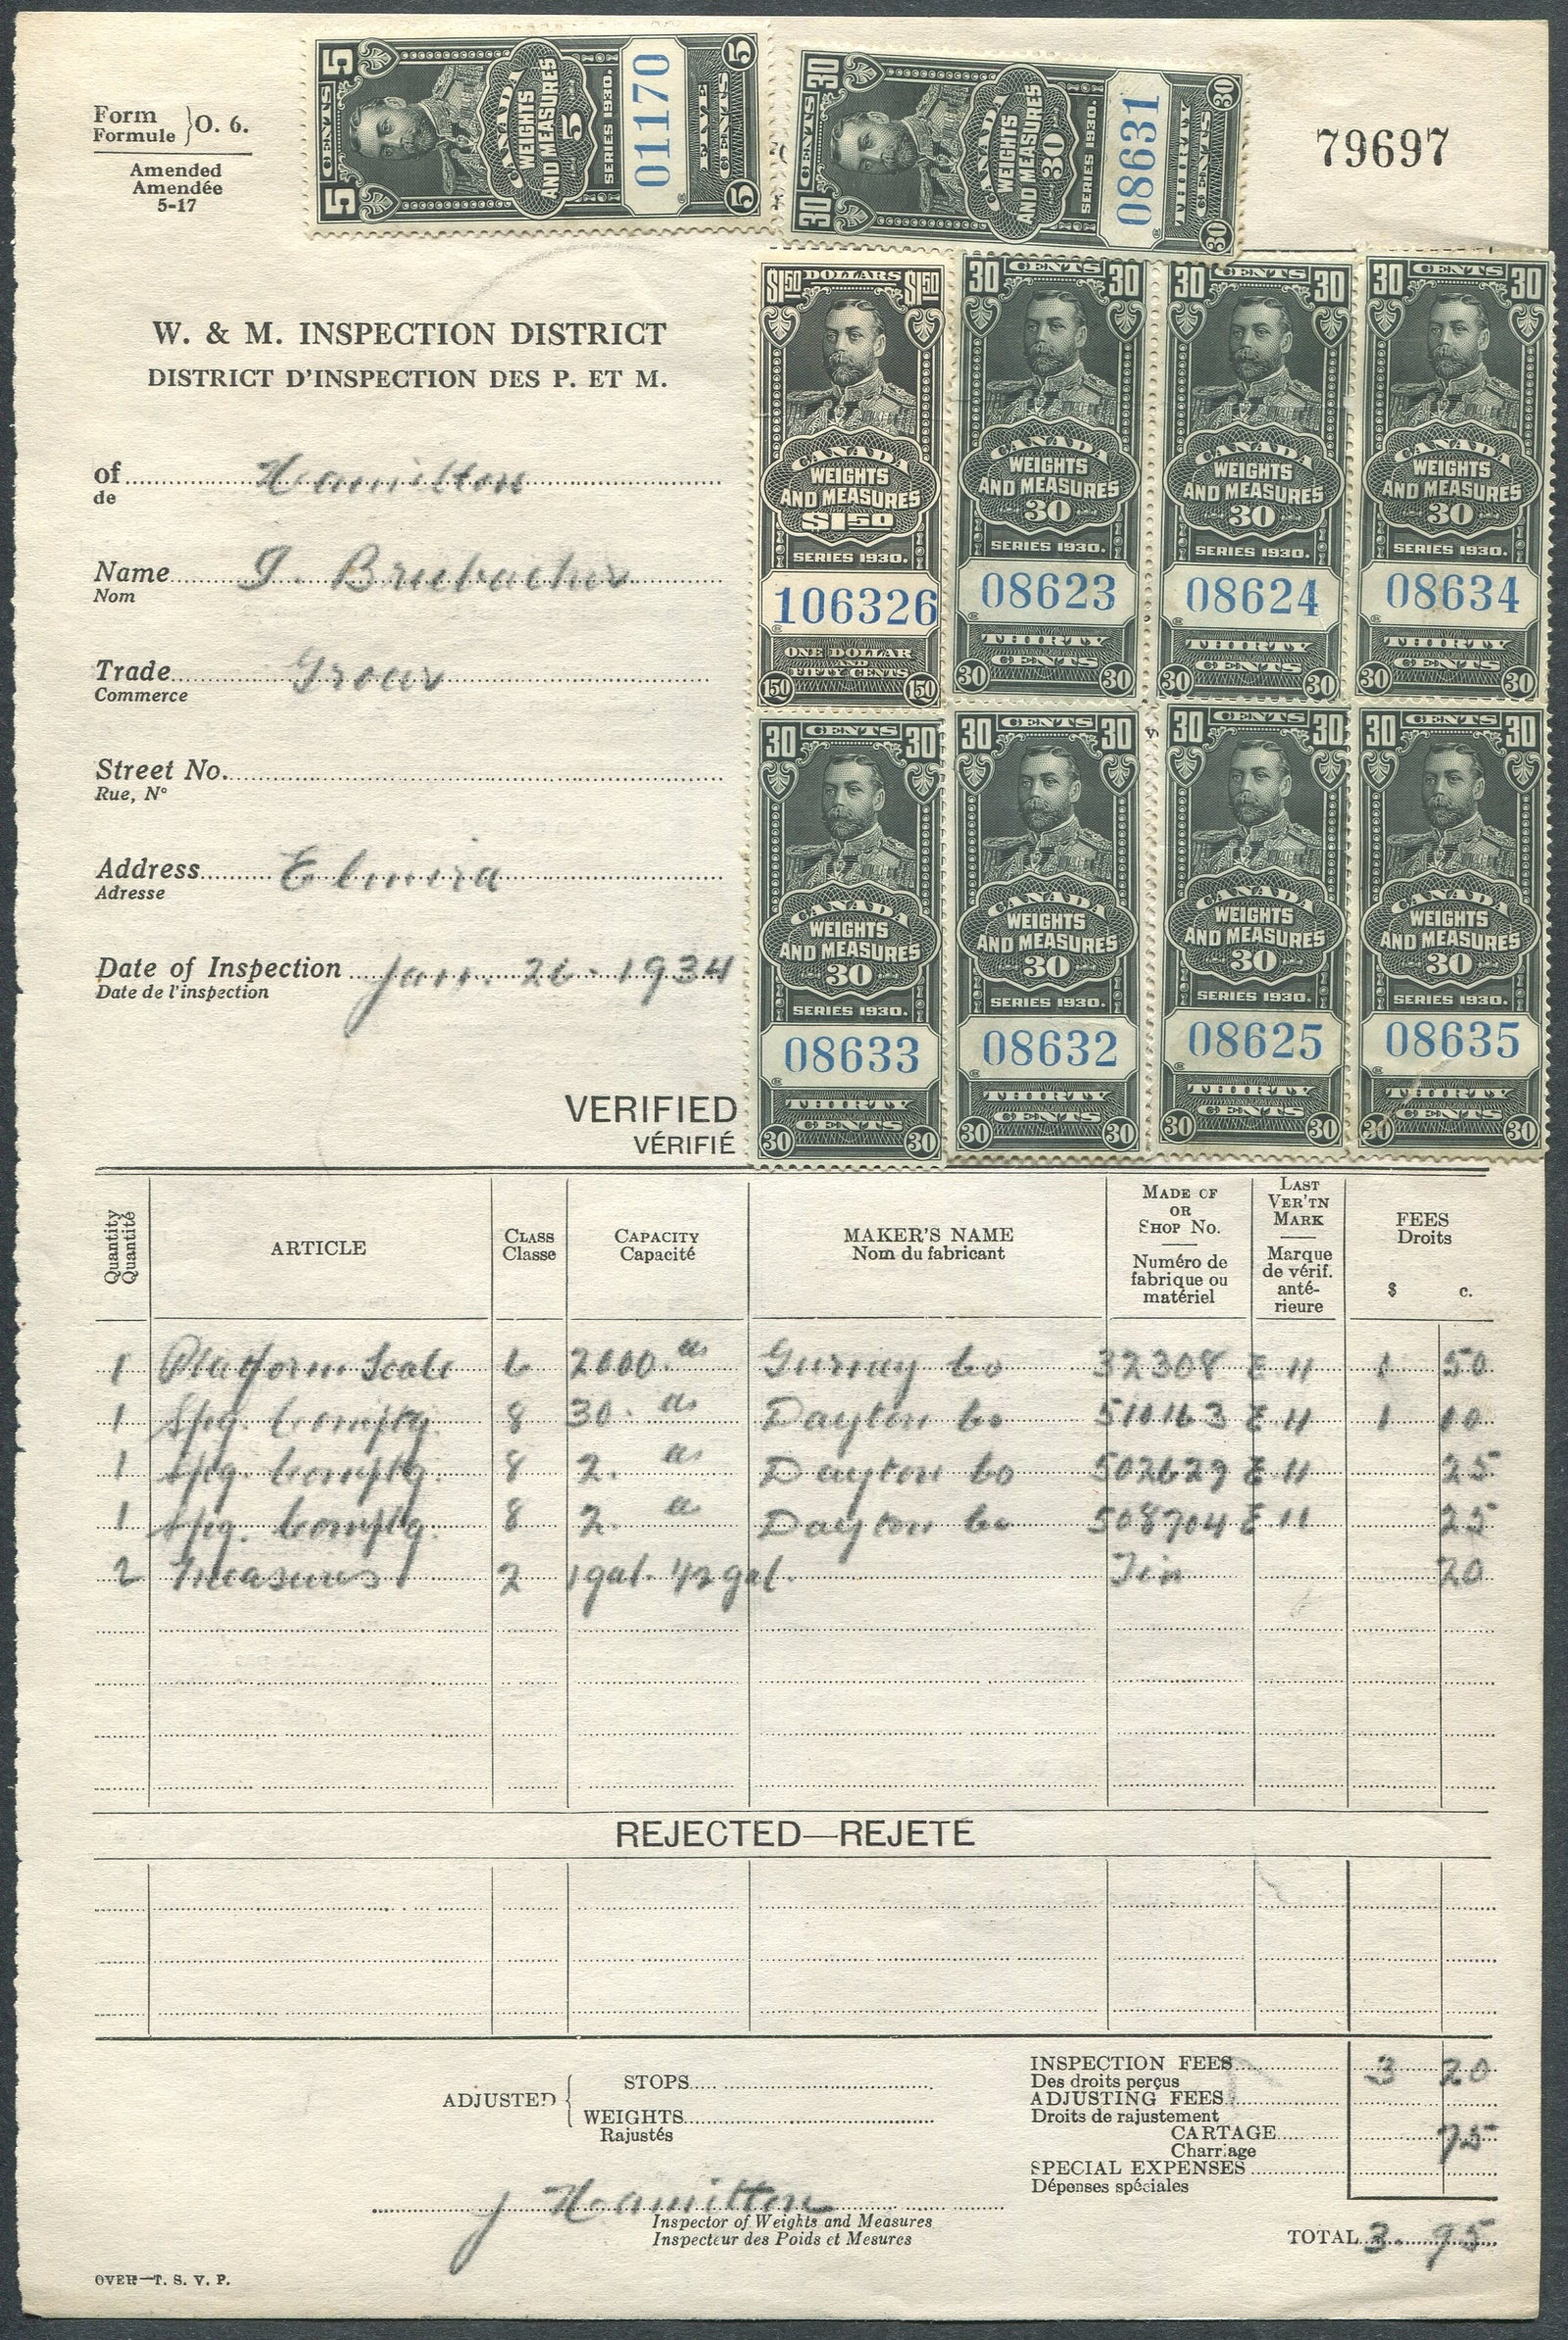 Form
Formule } O. 6.
Amended
Amendée
5-17
5 CENTS 5
CANADA
WEIGHTS
AND MEASURES
5
SERIES 1930.
01170
FIVE
CENTS
5 5
30 CENTS 30
CANADA
WEIGHTS
AND MEASURES
30
SERIES 1930.
08631
THIRTY
CENTS
30 30
79697
W. & M. INSPECTION DISTRICT
DISTRICT D'INSPECTION DES P. ET M.
of Hamilton
de
Name I. Brubacher
Nom
Trade Grocer
Commerce
Street No.
Rue, N°
Address Elmira
Adresse
Date of Inspection Jan. 26 - 1934
Date de l'inspection
VERIFIED
VÉRIFIÉ
$1.50 DOLLARS $1.50
CANADA
WEIGHTS
AND MEASURES
$1.50
SERIES 1930.
106326
ONE DOLLAR
AND
FIFTY CENTS
150 150
30 CENTS 30
CANADA
WEIGHTS
AND MEASURES
30
SERIES 1930.
08623
THIRTY
CENTS
30 30
30 CENTS 30
CANADA
WEIGHTS
AND MEASURES
30
SERIES 1930.
08624
THIRTY
CENTS
30 30
30 CENTS 30
CANADA
WEIGHTS
AND MEASURES
30
SERIES 1930.
08634
THIRTY
CENTS
30 30
30 CENTS 30
CANADA
WEIGHTS
AND MEASURES
30
SERIES 1930.
08633
THIRTY
CENTS
30 30
30 CENTS 30
CANADA
WEIGHTS
AND MEASURES
30
SERIES 1930.
08632
THIRTY
CENTS
30 30
30 CENTS 30
CANADA
WEIGHTS
AND MEASURES
30
SERIES 1930.
08625
THIRTY
CENTS
30 30
30 CENTS 30
CANADA
WEIGHTS
AND MEASURES
30
SERIES 1930.
08635
THIRTY
CENTS
30 30
Quantity
Quantité
ARTICLE
CLASS
Classe
CAPACITY
Capacité
MAKER'S NAME
Nom du fabricant
MADE OF
OR
SHOP NO.
Numéro de
fabrique ou
matériel
LAST
VER'TN
MARK
Marque
de vérif.
anté-
rieure
FEES
Droits
$ c.
1 Platform Scale 6 2000 Gurney Co 32308 E 11 1 50
1 Spg. Comptg. 8 30. Dayton Co 510163 E 11 1 00
1 Spg. Comptg. 8 2. Dayton Co 502629 E 11 25
1 Spg. Comptg. 8 2. Dayton Co 508704 E 11 25
2 Measures 2 1 gal. 1/2 gal. Tin 20
REJECTED—REJETÉ
ADJUSTED { STOPS
WEIGHTS
Rajustés
INSPECTION FEES 3 20
Des droits perçus
ADJUSTING FEES
Droits de rajustement
CARTAGE 75
Charriage
SPECIAL EXPENSES
Dépenses spéciales
J Hamilton
Inspector of Weights and Measures
Inspecteur des Poids et Mesures
TOTAL 3. 95
OVER—T. S. V. P.